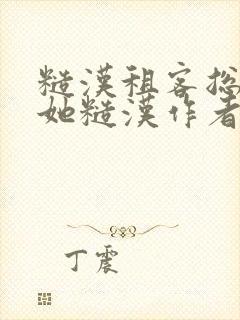 糙漢租客捴
她糙漢作者
丁震